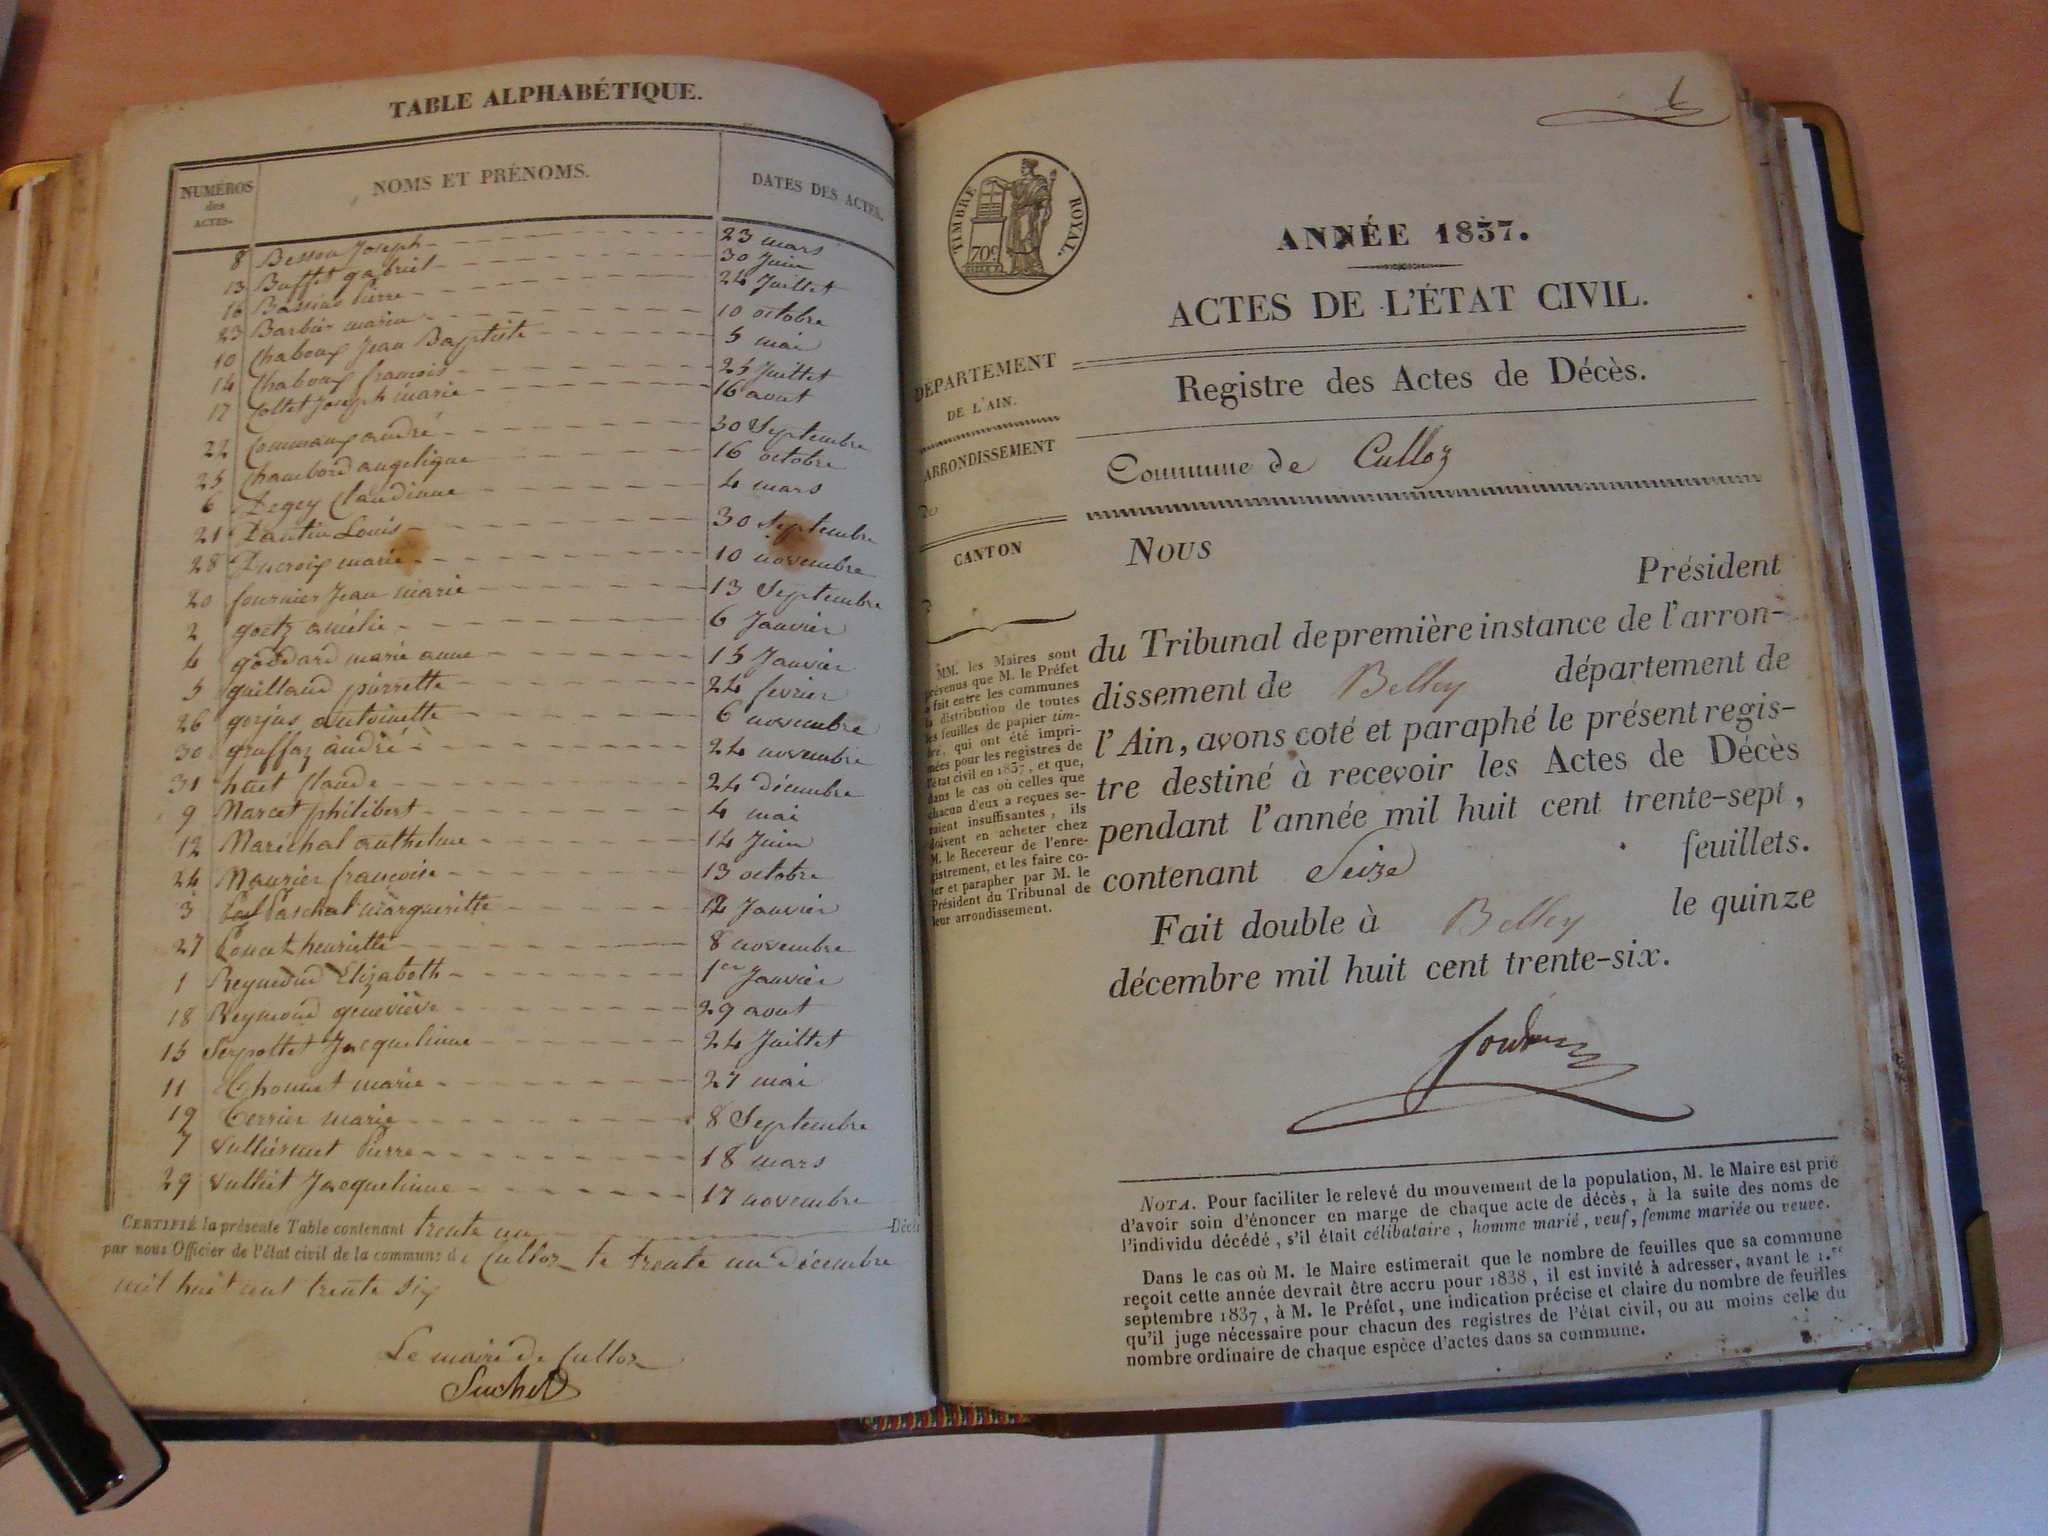 TABLE ALPHABÉTIQUE.
NUMÉROS des ACTES. NOMS ET PRÉNOMS. DATES DES ACTES.
8 Besson Joseph 23 mars
13 Buffet gabriel 30 Juin
16 Bassine Pierre 24 Juillet
23 Barbier marie 10 octobre
10 Chaboux Jean Baptiste 5 mai
14 Chaboux francois 25 Juillet
17 Collet Joseph marie 16 aout
22 andré 30 Septembre
25 Chambord angelique 16 octobre
6 Degey Claudinne 4 mars
21 Dantin Louis 30 Septembre
28 Ducroix marie 10 novembre
20 fournier Jean marie 13 Septembre
2 goetz amélie 6 Janvier
4 goddard marie anne 15 Janvier
5 guilland pierrette 24 fevrier
26 gorjus antoinette 6 novembre
30 gruffaz andré 24 novembre
31 huet Claude 24 décembre
9 Marcet philibert 4 mai
12 Maréchal anthelme 14 Juin
24 Maurier francoise 13 octobre
3 Paschal marguerite 12 Janvier
27 Poncet henriette 8 novembre
1 Reymond Elizabeth 1er Janvier
18 Reymond geneviève 29 aout
15 Serpollet Jacquelinne 24 Juillet
11 Thonnet marie 27 mai
19 Terrier marie 8 Septembre
7 Vulliermet Pierre 18 mars
29 Vulliet Jacquelinne 17 novembre
CERTIFIÉ la présente Table contenant trente un Décès
par nous Officier de l'état civil de la commune de Culloz le trente un décembre
mil huit cent trente six
Le maire de Culloz
Suchet
1
TIMBRE ROYAL.
70c
ANNÉE 1837.
ACTES DE L'ÉTAT CIVIL.
DÉPARTEMENT
DE L'AIN.
ARRONDISSEMENT
CANTON
Registre des Actes de Décès.
Commune de Culloz
MM. les Maires sont
prévenus que M. le Préfet
a fait entre les communes
la distribution de toutes
les feuilles de papier tim-
bré, qui ont été impri-
mées pour les registres de
l'état civil en 1837, et que,
dans le cas où celles que
chacun d'eux a reçues se-
raient insuffisantes, ils
doivent en acheter chez
M. le Receveur de l'enre-
gistrement, et les faire co-
ter et parapher par M. le
Président du Tribunal de
leur arrondissement.
Nous
Président
du Tribunal de première instance de l'arron-
dissement de Belley département de
l'Ain, avons coté et paraphé le présent regis-
tre destiné à recevoir les Actes de Décès
pendant l'année mil huit cent trente-sept,
contenant Seize feuillets.
Fait double à Belley le quinze
décembre mil huit cent trente-six.
NOTA. Pour faciliter le relevé du mouvement de la population, M. le Maire est prié
d'avoir soin d'énoncer en marge de chaque acte de décès, à la suite des noms de
l'individu décédé, s'il était célibataire, homme marié, veuf, femme mariée ou veuve.
Dans le cas où M. le Maire estimerait que le nombre de feuilles que sa commune
reçoit cette année devrait être accru pour 1838, il est invité à adresser, avant le 1.er
septembre 1837, à M. le Préfet, une indication précise et claire du nombre de feuilles
qu'il juge nécessaire pour chacun des registres de l'état civil, ou au moins celle du
nombre ordinaire de chaque espèce d'actes dans sa commune.